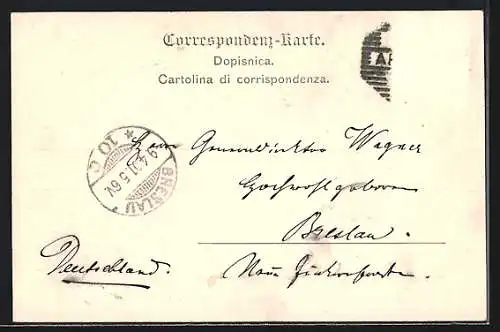 Correspondenz-Karte.
Dopisnica.
Cartolina di corrispondenza.
AR
* 10 C
9.4.01.5-6V.
BRESLAU
Herrn Generaldirektor Wagner
Hochwohlgeboren
Breslau.
Deutschland.
Neue